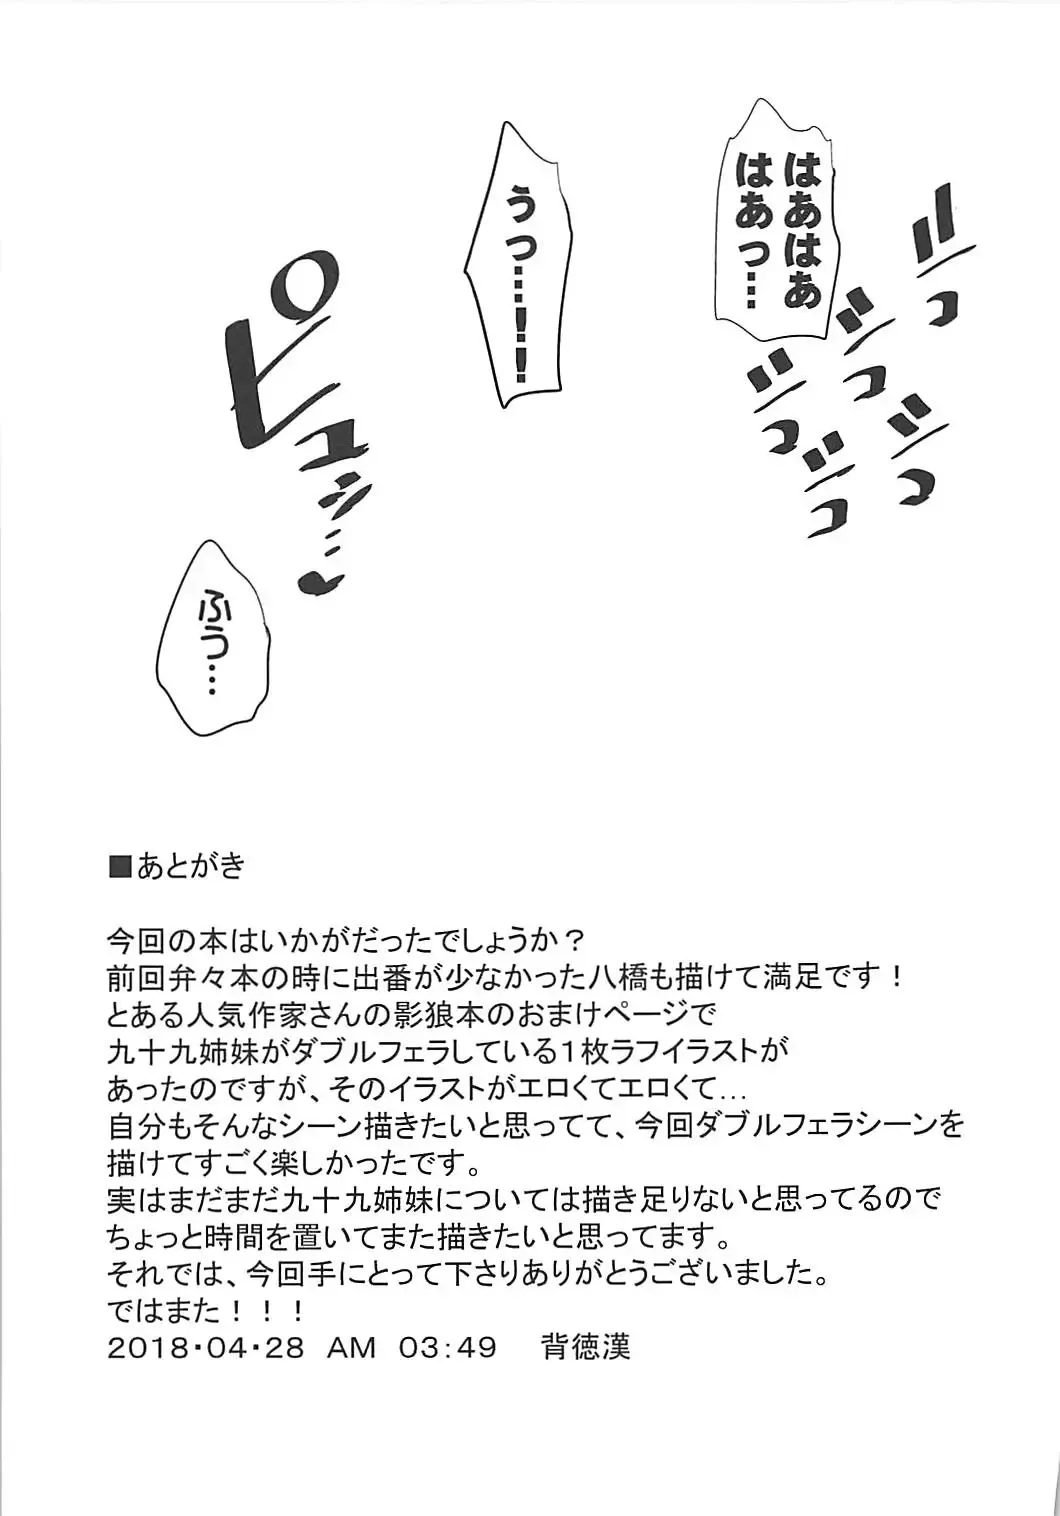 はあはあ
はあっ…
ジッ
ジッ
ジッ
ジッ
ジッ
うっ…!!!
ピュッ…♥
ふぅ…
■あとがき
今回の本はいかがだったでしょうか？
前回弁々本の時に出番が少なかった八橋も描けて満足です！
とある人気作家さんの影狼本のおまけページで
九十九姉妹がダブルフェラしている１枚ラフイラストが
あったのですが、そのイラストがエロくてエロくて…
自分もそんなシーン描きたいと思ってて、今回ダブルフェラシーンを
描けてすごく楽しかったです。
実はまだまだ九十九姉妹については描き足りないと思ってるので
ちょっと時間を置いてまた描きたいと思ってます。
それでは、今回手にとって下さりありがとうございました。
ではまた！！！
２０１８・０４・２８　ＡＭ　０３：４９　背徳漢